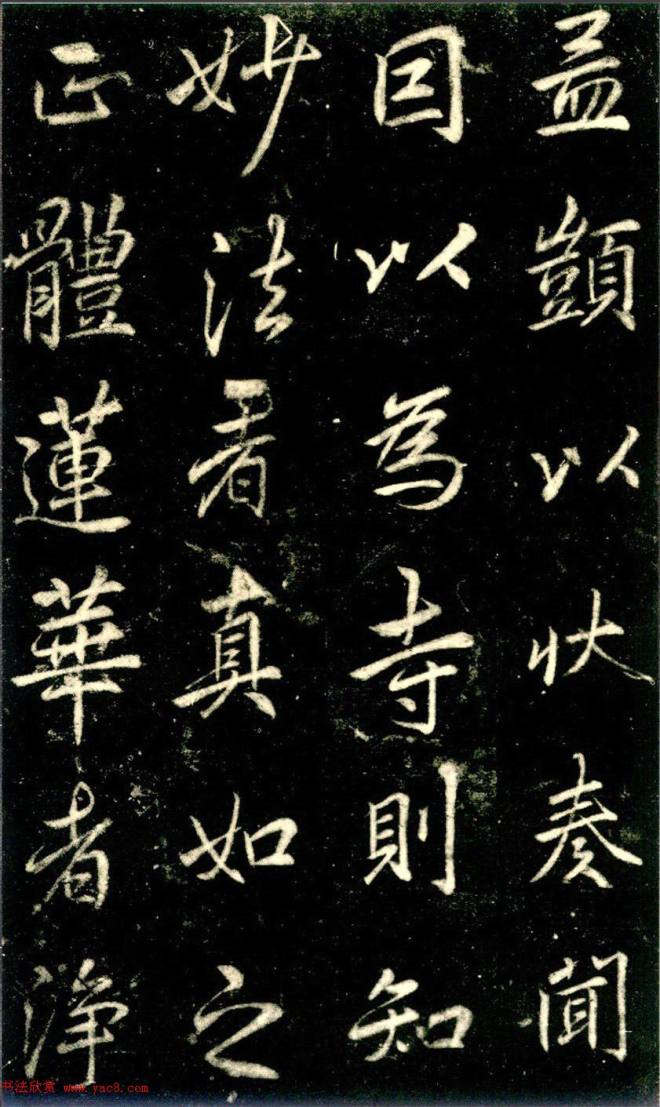 益顗以狀奏聞
因以為寺則知
妙法者真如之
正體蓮華者淨
书法欣赏 www.yac8.com